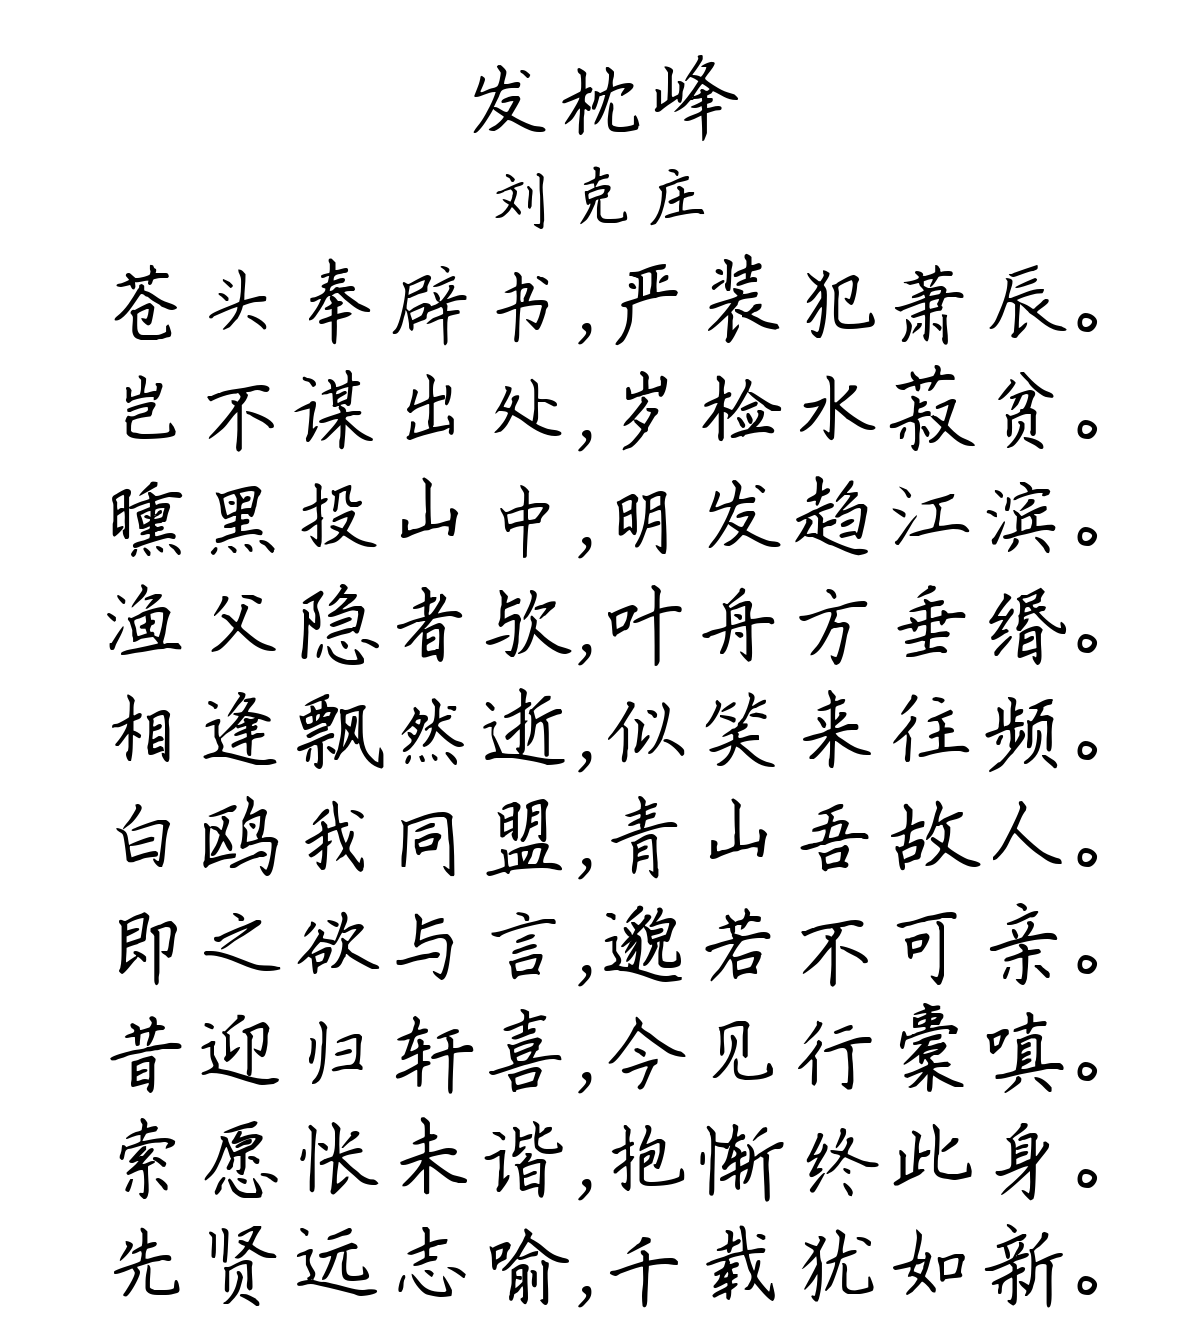 发枕峰
刘克庄
苍头奉辟书,严装犯萧辰。
岂不谋出处,岁检水菽贫。
曛黑投山中,明发趋江滨。
渔父隐者欤,叶舟方垂缗。
相逢飘然逝,似笑来往频。
白鸥我同盟,青山吾故人。
即之欲与言,邈若不可亲。
昔迎归轩喜,今见行橐嗔。
索愿怅未谐,抱惭终此身。
先贤远志喻,千载犹如新。